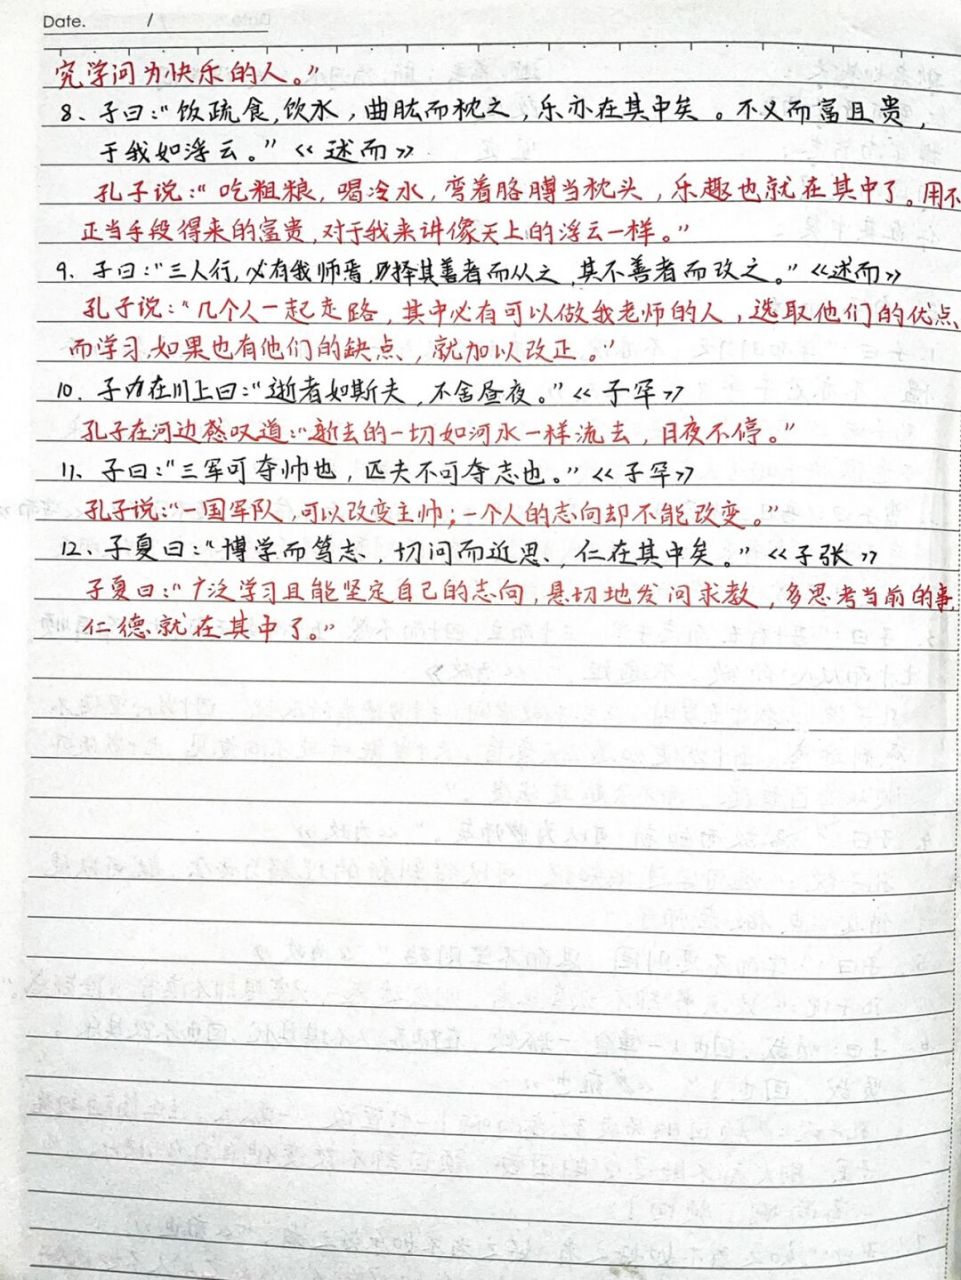 Date.        /
究学问为快乐的人。”
8、子曰：“饭疏食，饮水，曲肱而枕之，乐亦在其中矣。不义而富且贵，
于我如浮云。”《述而》
孔子说：“吃粗粮，喝冷水，弯着胳膊当枕头，乐趣也就在其中了。用不
正当手段得来的富贵，对于我来讲像天上的浮云一样。”
9、子曰：“三人行，必有我师焉，择其善者而从之，其不善者而改之。”《述而》
孔子说：“几个人一起走路，其中必有可以做我老师的人，选取他们的优点
而学习，如果也有他们的缺点、就加以改正。”
10、子在川上曰：“逝者如斯夫，不舍昼夜。”《子罕》
孔子在河边感叹道：“逝去的一切如河水一样流去，日夜不停。”
11、子曰：“三军可夺帅也，匹夫不可夺志也。”《子罕》
孔子说：“一国军队，可以改变主帅；一个人的志向却不能改变。”
12、子夏曰：“博学而笃志、切问而近思、仁在其中矣。”《子张》
子夏曰：“广泛学习且能坚定自己的志向，恳切地发问求教，多思考当前的事，
仁德就在其中了。”